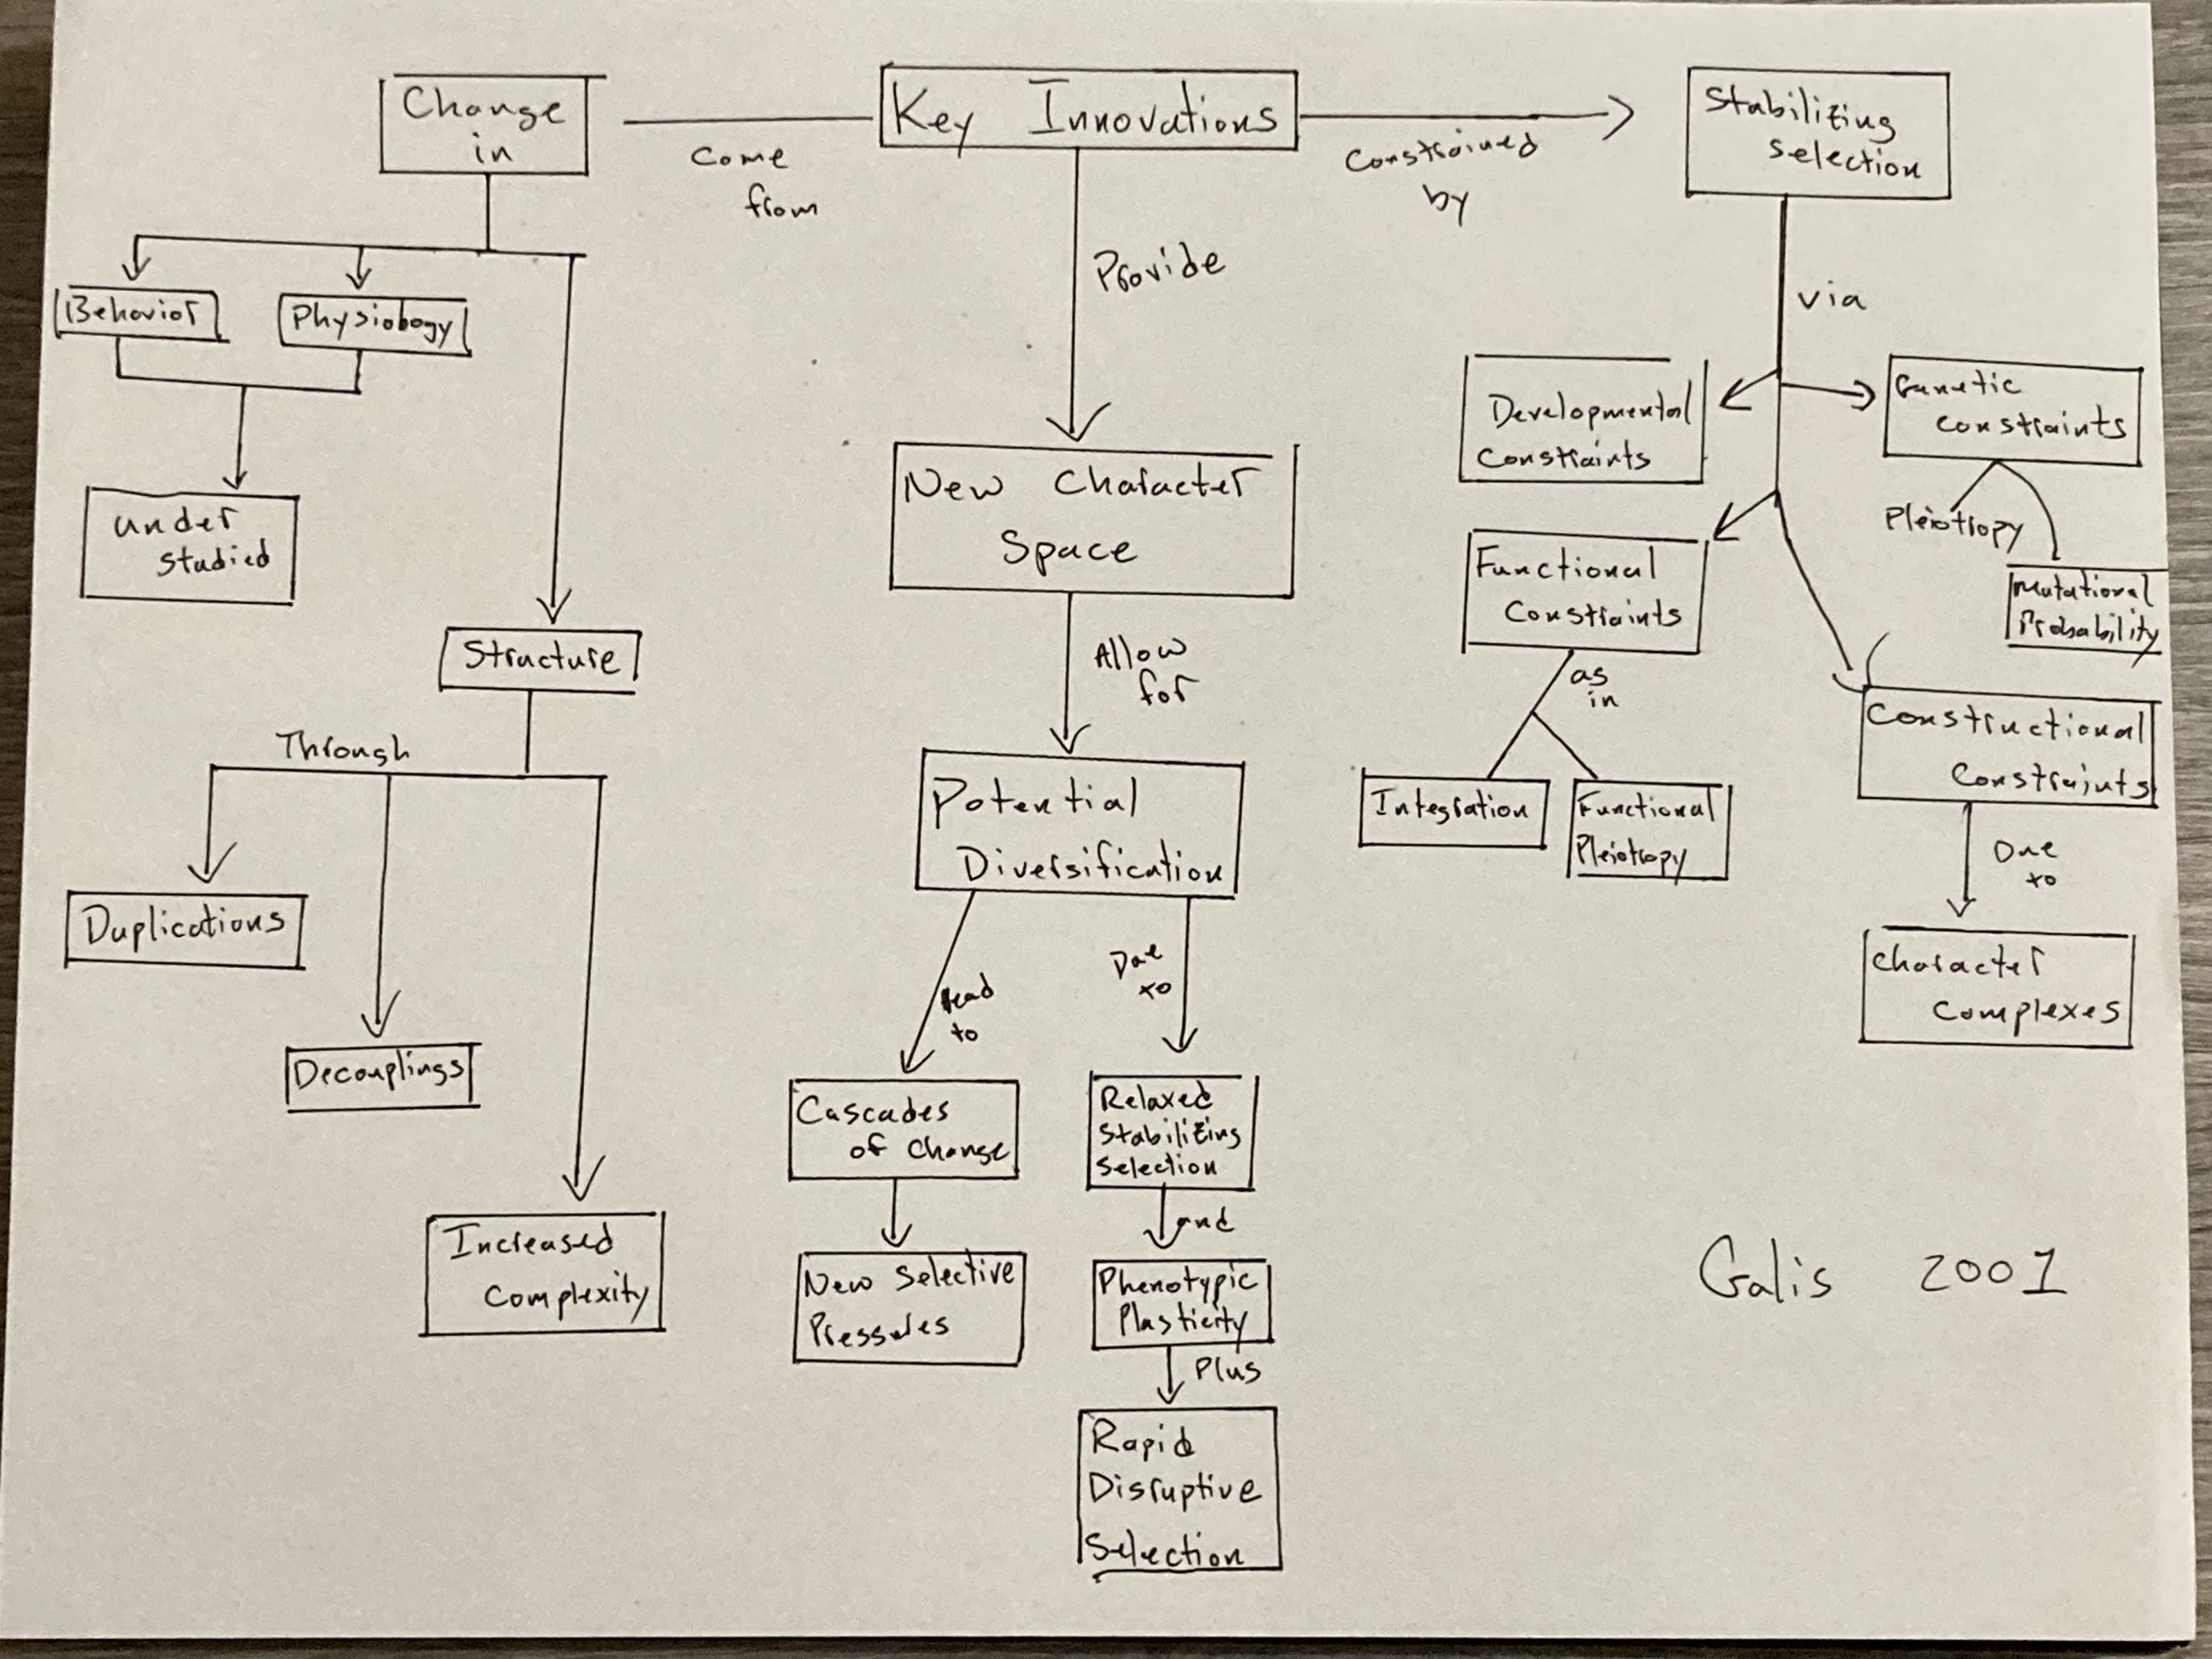 Change
in
Come
from
Key Innovations
Constrained
by
Stabilizing
selection
Behavior
Physiology
under
studied
Structure
Through
Duplications
Decouplings
Increased
complexity
Provide
New Character
Space
Allow
for
Potential
Diversification
lead
to
Due
to
Cascades
of change
New selective
Pressures
Relaxed
stabilizing
selection
and
Phenotypic
Plasticity
Plus
Rapid
Disruptive
Selection
via
Developmental
constraints
Genetic
constraints
Pleiotropy
Mutational
Probability
Functional
constraints
as
in
Integration
Functional
Pleiotropy
Constructional
constraints
Due
to
character
complexes
Galis 2001